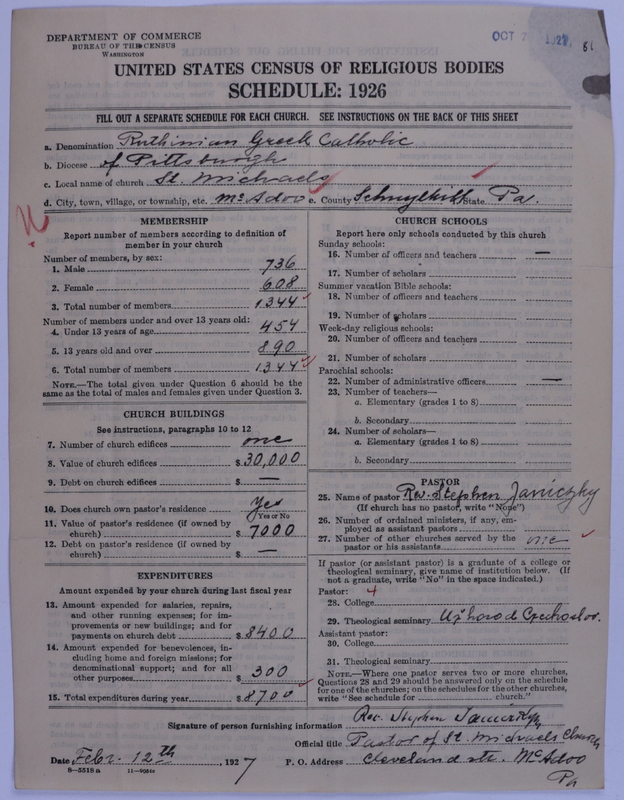 DEPARTMENT OF COMMERCE
BUREAU OF THE CENSUS
WASHINGTON
OCT 7 1927
UNITED STATES CENSUS OF RELIGIOUS BODIES
SCHEDULE: 1926
FILL OUT A SEPARATE SCHEDULE FOR EACH CHURCH. SEE INSTRUCTIONS ON THE BACK OF THIS SHEET
a. Denomination Ruthinian Greek Catholic
b. Diocese of Pittsburgh
c. Local name of church St. Michaels
d. City, town, village, or township, etc. Mc Adoo e. County Schuylkill State Pa.
MEMBERSHIP
Report number of members according to definition of
member in your church
Number of members, by sex:
1. Male 736
2. Female 608
3. Total number of members 1344
Number of members under and over 13 years old:
4. Under 13 years of age 454
5. 13 years old and over 890
6. Total number of members 1344
NOTE.—The total given under Question 6 should be the
same as the total of males and females given under Question 3.
CHURCH BUILDINGS
See instructions, paragraphs 10 to 12
7. Number of church edifices one
8. Value of church edifices $ 30,000
9. Debt on church edifices $ —
10. Does church own pastor's residence Yes
Yes or No
11. Value of pastor's residence (if owned by
church) $ 7000
12. Debt on pastor's residence (if owned by
church) $ —
EXPENDITURES
Amount expended by your church during last fiscal year
13. Amount expended for salaries, repairs,
and other running expenses; for im-
provements or new buildings; and for
payments on church debt $ 8400
14. Amount expended for benevolences, in-
cluding home and foreign missions; for
denominational support; and for all
other purposes $ 300
15. Total expenditures during year $ 8700
CHURCH SCHOOLS
Report here only schools conducted by this church
Sunday schools:
16. Number of officers and teachers —
17. Number of scholars
Summer vacation Bible schools:
18. Number of officers and teachers
19. Number of scholars
Week-day religious schools:
20. Number of officers and teachers
21. Number of scholars
Parochial schools:
22. Number of administrative officers —
23. Number of teachers—
a. Elementary (grades 1 to 8)
b. Secondary
24. Number of scholars—
a. Elementary (grades 1 to 8)
b. Secondary
PASTOR
25. Name of pastor Rev. Stephen Janiczky
(If church has no pastor, write "None")
26. Number of ordained ministers, if any, em-
ployed as assistant pastors
27. Number of other churches served by the
pastor or his assistants one
If pastor (or assistant pastor) is a graduate of a college or
theological seminary, give name of institution below. (If
not a graduate, write "No" in the space indicated.)
Pastor: 4
28. College
29. Theological seminary Užhorod Czechoslov.
Assistant pastor:
30. College
31. Theological seminary
NOTE.—Where one pastor serves two or more churches,
Questions 28 and 29 should be answered only on the schedule
for one of the churches; on the schedules for the other churches,
write "See schedule for church."
Signature of person furnishing information Rev. Stephen Janiczky
Official title Pastor of St. Michaels Church
Date Febr. 12th, 1927 P. O. Address Cleveland str. Mc Adoo
Pa
8—5518 a 11—9264a